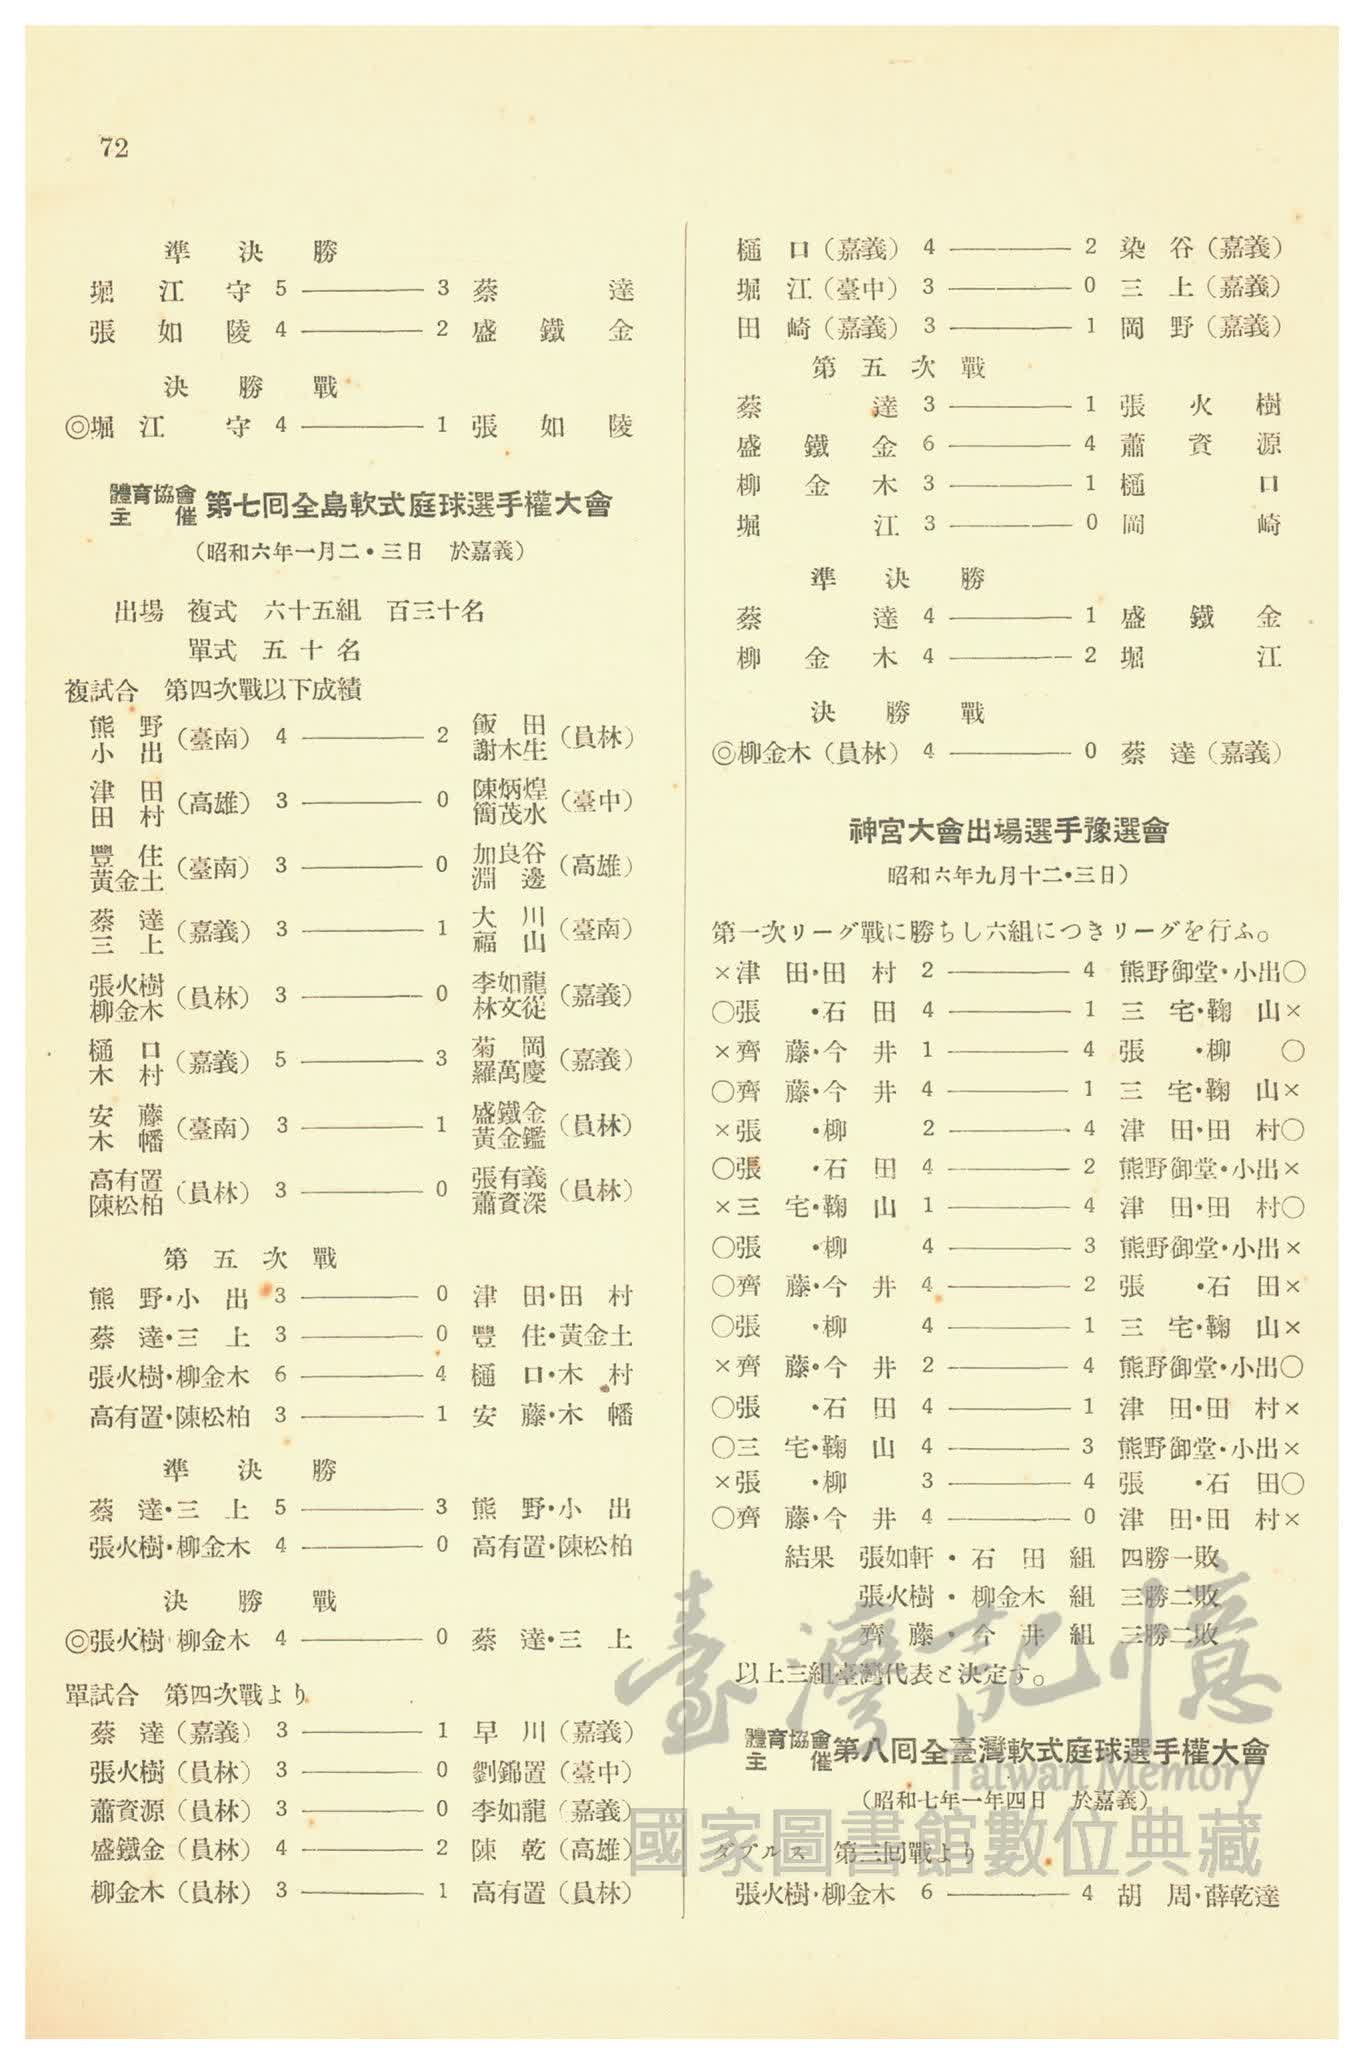 72
準決勝
堀江守 5 ——— 3 蔡達
張如陵 4 ——— 2 盛鐵金
決勝戰
◎堀江守 4 ——— 1 張如陵
體育協會主催 第七回全島軟式庭球選手權大會
（昭和六年一月二・三日　於嘉義）
出場　複式　六十五組　百三十名
單式　五十名
複試合　第四次戰以下成績
熊野 小出（臺南） 4 ——— 2 飯田 謝木生（員林）
津田 田村（高雄） 3 ——— 0 陳炳煌 簡茂水（臺中）
豐住 黃金土（臺南） 3 ——— 0 加良谷 淵邊（高雄）
蔡達 三上（嘉義） 3 ——— 1 大川 福山（臺南）
張火樹 柳金木（員林） 3 ——— 0 李如龍 林文從（嘉義）
樋口 木村（嘉義） 5 ——— 3 菊岡 羅萬慶（嘉義）
安藤 木幡（臺南） 3 ——— 1 盛鐵金 黃金鑑（員林）
高有置 陳松柏（員林） 3 ——— 0 張有義 蕭資深（員林）
第五次戰
熊野・小出 3 ——— 0 津田・田村
蔡達・三上 3 ——— 0 豐住・黃金土
張火樹・柳金木 6 ——— 4 樋口・木村
高有置・陳松柏 3 ——— 1 安藤・木幡
準決勝
蔡達・三上 5 ——— 3 熊野・小出
張火樹・柳金木 4 ——— 0 高有置・陳松柏
決勝戰
◎張火樹・柳金木 4 ——— 0 蔡達・三上
單試合　第四次戰より
蔡達（嘉義） 3 ——— 1 早川（嘉義）
張火樹（員林） 3 ——— 0 劉錦置（臺中）
蕭資源（員林） 3 ——— 0 李如龍（嘉義）
盛鐵金（員林） 4 ——— 2 陳乾（高雄）
柳金木（員林） 3 ——— 1 高有置（員林）
樋口（嘉義） 4 ——— 2 染谷（嘉義）
堀江（臺中） 3 ——— 0 三上（嘉義）
田崎（嘉義） 3 ——— 1 岡野（嘉義）
第五次戰
蔡達 3 ——— 1 張火樹
盛鐵金 6 ——— 4 蕭資源
柳金木 3 ——— 1 樋口
堀江 3 ——— 0 岡崎
準決勝
蔡達 4 ——— 1 盛鐵金
柳金木 4 ——— 2 堀江
決勝戰
◎柳金木（員林） 4 ——— 0 蔡達（嘉義）
神宮大會出場選手豫選會
昭和六年九月十二・三日）
第一次リーグ戰に勝ちし六組につきリーグを行ふ。
×津田・田村 2 ——— 4 熊野御堂・小出○
○張・石田 4 ——— 1 三宅・鞠山×
×齊藤・今井 1 ——— 4 張・柳○
○齊藤・今井 4 ——— 1 三宅・鞠山×
×張・柳 2 ——— 4 津田・田村○
○張・石田 4 ——— 2 熊野御堂・小出×
×三宅・鞠山 1 ——— 4 津田・田村○
○張・柳 4 ——— 3 熊野御堂・小出×
○齊藤・今井 4 ——— 2 張・石田×
○張・柳 4 ——— 1 三宅・鞠山×
×齊藤・今井 2 ——— 4 熊野御堂・小出○
○張・石田 4 ——— 1 津田・田村×
○三宅・鞠山 4 ——— 3 熊野御堂・小出×
×張・柳 3 ——— 4 張・石田○
○齊藤・今井 4 ——— 0 津田・田村×
結果　張如軒・石田組　四勝一敗
張火樹・柳金木組　三勝二敗
齊藤・今井組　三勝二敗
以上三組臺灣代表と決定す。
體育協會主催 第八回全臺灣軟式庭球選手權大會
（昭和七年一年四日　於嘉義）
ダブルス　第三回戰より
張火樹・柳金木 6 ——— 4 胡周・薛乾達
臺灣記憶
Taiwan Memory
國家圖書館數位典藏